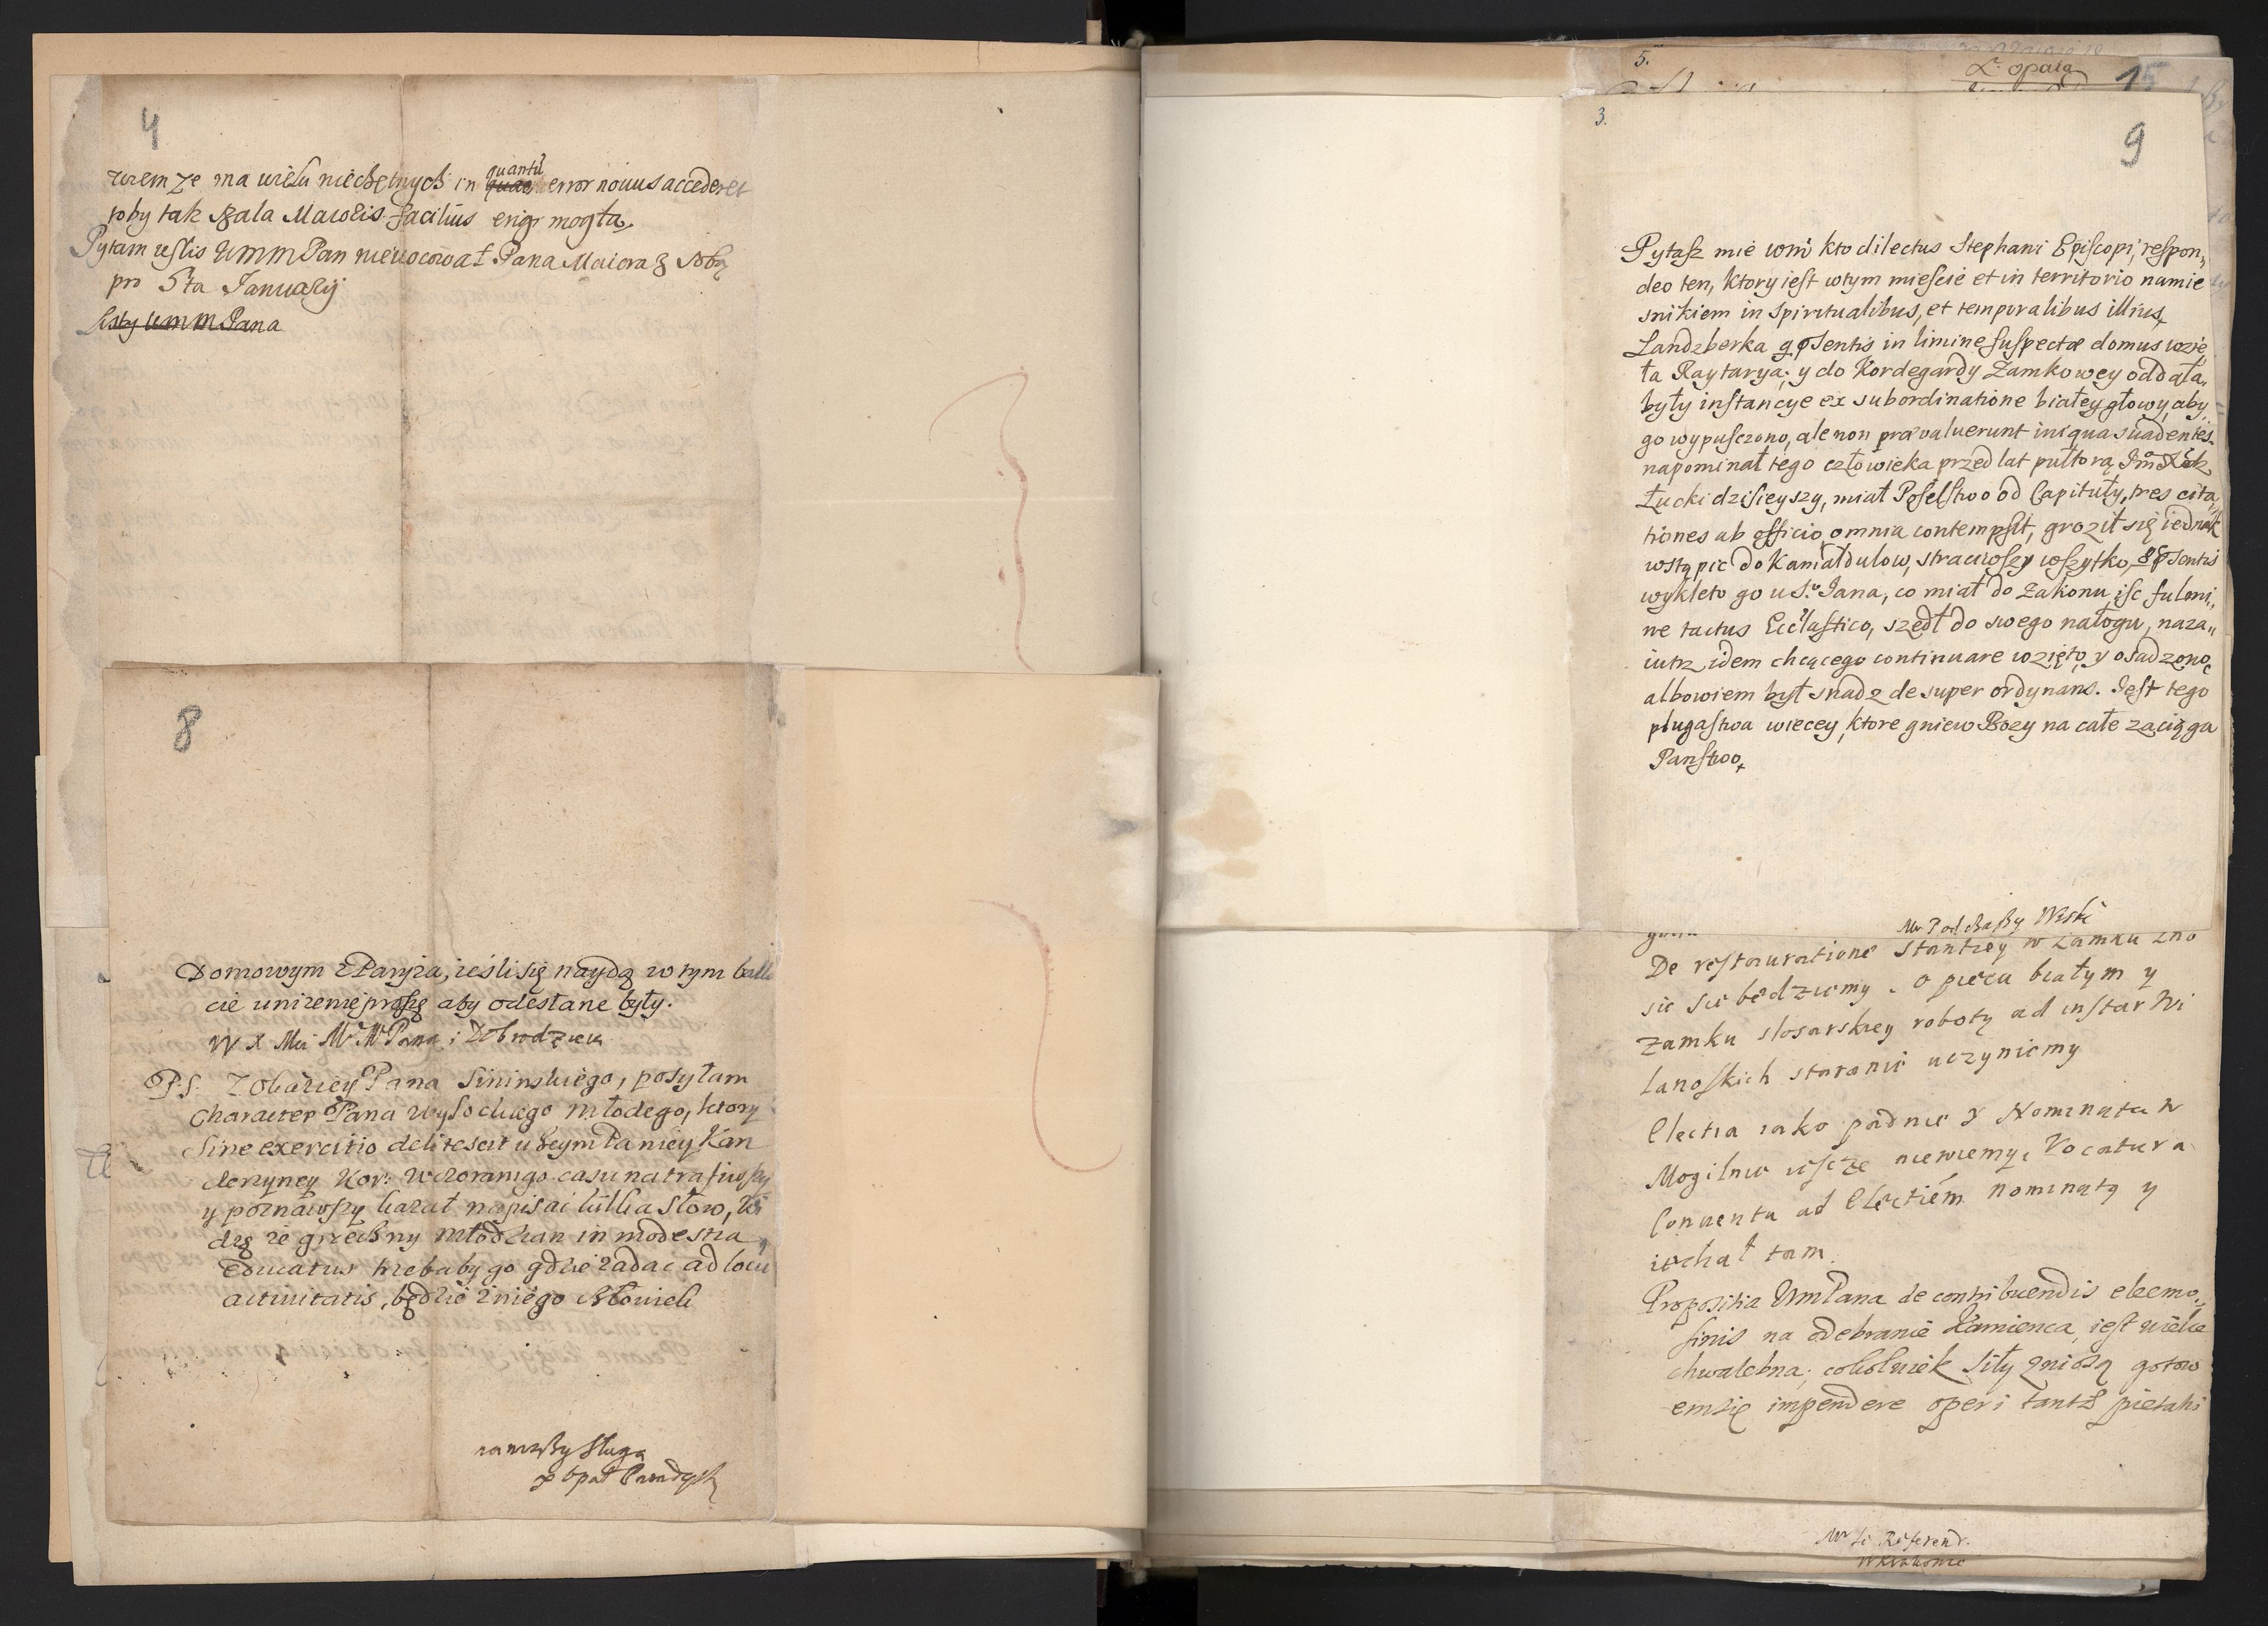 4
wiem ze ma wielu niechętnych in quantũ error nouus accederet
toby tak szala Marolis facilius erigi mogła.
Pytam jeslis WmmPan niewocował Pana Maiora z sobą
pro 5ta Januarij
listy WmmPana
8
Domowym z Paryża, ieśli się naydą w tym
cie uniżenie proszę aby odesłane były.
W X Mci M M Pana i Dobrodzieia
P.S. Z Pana Sininskiego, posyłam
Character Pana Wysockiego młodego, ktory
Sine exercitio delitescit u JeymPaniey Kan
clerzyney Kor: wczoraniego casu natrafiwszy
y poznawszy kazał napisać kilka słow, Wi
dzę że grzeczny młodzian in modestia
educatus trzebaby go gdzie zadac ad locu
activitatis, będzie z niego człowiek
nanizszy sługa
X Opat Paradysk
5.
L. opata
15
3.
9
Pytasz mie wm kto dilectus Stephani Episcopi, respon„
deo ten, ktory iest wtym miescie et in territorio namie
snikiem in spiritualibus, et temporalibus illius,
Landzberka in limine suspectæ domus wzie„
ta Raytarya; y do Kordegardy Zamkowey oddała.
były instancye ex subordinatione białey głowy, aby
go wypuszczono, ale non prævaluerunt iniqua suadentes.
napominał tego człowieka przed lat pułtorą
Łucki dzisieyszy, miał Poselstwo od Capituły, tres cita„
tiones ab officio, omnia contempsit, groził się iednak
wstąpic do Kamaldulow, straciwszy wszytko,
wyklęto go u S.º Jana, co miał do Zakonu iść fulmi„
ne tactus Ecclastico, szedł do swego nałogu, naza„
iutrz idem chcącego continuare wzięto, y osadzono,
albowiem był snadz de super ordynans. Jest tego
plugastwa wiecey, ktore gniew Bozy na całe zaciąga
Panstwo,
De restauratione Stantiey w zamku zno
sic się będziemy. o piecu białym y
zamku slosarskiey roboty ad instar Wi
lanoskich staranie uczyniemy
Electia iako padnie z Nominata w
Mogilnie iescze niewiemy, Vocatura
Conuentu ad Electiem nominatą y
iechał tam.
Propositia WmPana de contribuendis eleemo„
sinis na odebranie Kamienca, iest wielce
chwalebna; cokolwiek siły zniosą gotow
emsię impendere operi tantæ pietatis
Mr le Referend.